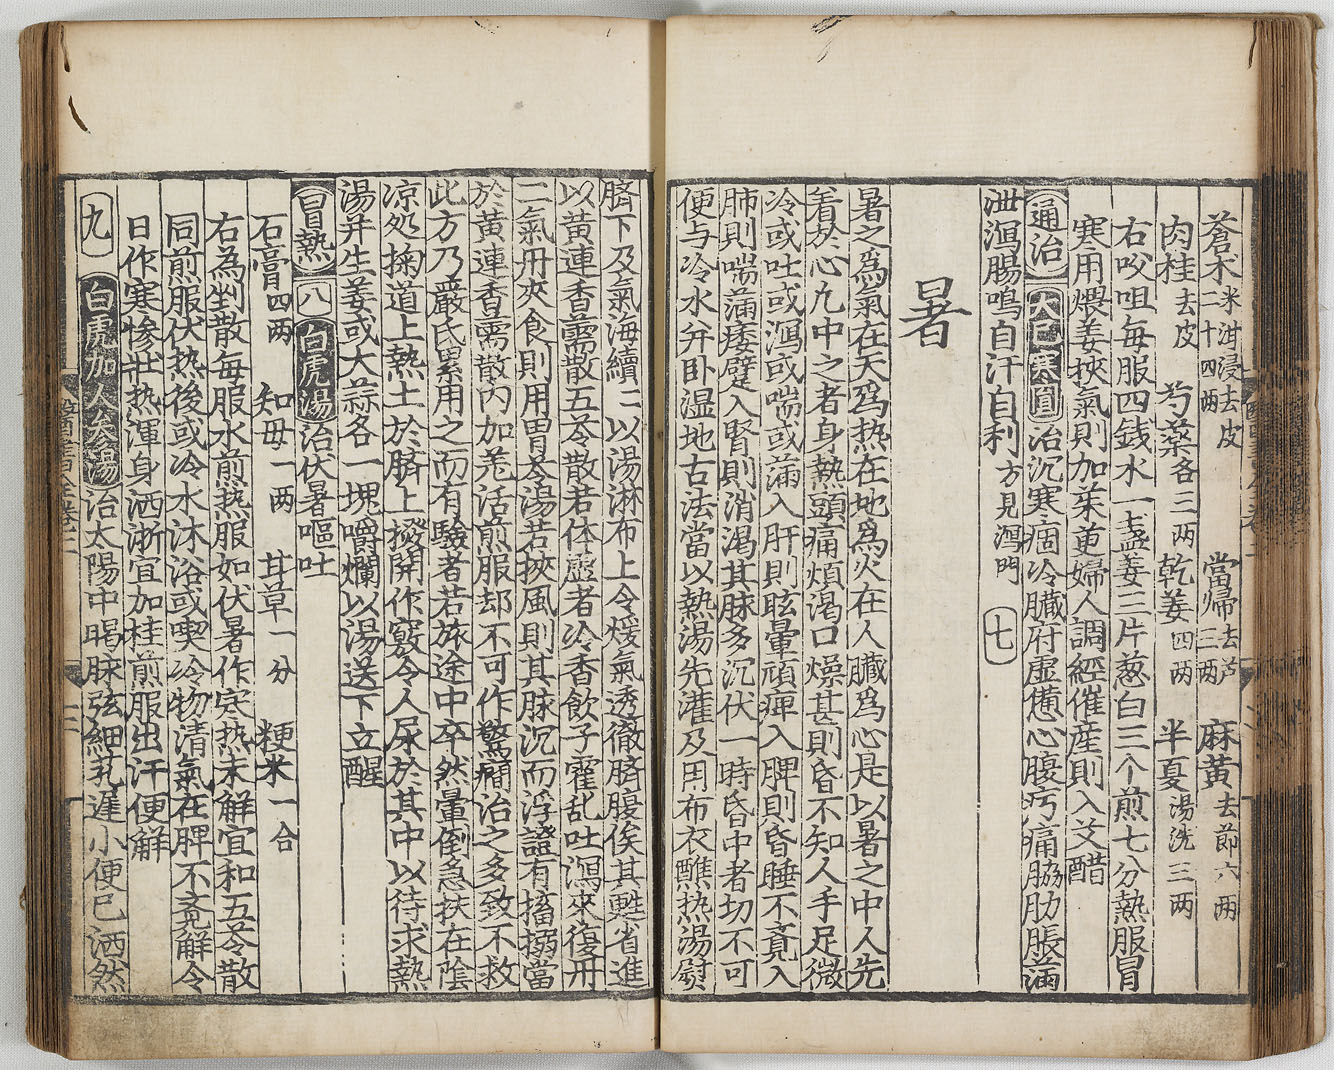 蒼术米泔浸去皮二十四两 當歸去芦三两 麻黄去節六两
肉桂去皮 芍藥各三两 乾姜四两 半夏湯洗三两
右㕮咀每服四銭水一盞姜三片葱白三个煎七分熱服冒
寒用煨姜挾氣則加茱萸婦人調經催産則入艾醋
通治 大已寒圓 治沉寒痼冷臟府虚憊心腹㽲痛脇肋脹滿
泄瀉腸鳴自汗自利方見瀉門 七
暑
暑之爲氣在天爲热在地爲火在人臟爲心是以暑之中人先
着於心凢中之者身熱頭痛煩渴口燥甚則昏不知人手足微
冷或吐或瀉或喘或滿入肝則眩暈頑痺入脾則昏睡不覺入
肺則喘滿痿躄入腎則消渴其脉多沉伏一時昏中者切不可
便与冷水并卧湿地古法當以熱湯先灌及用布衣醮热湯熨
臍下及氣海續二以湯淋布上令煖氣透徹臍腹俟其甦省進
以黄連香薷散五苓散若体虚者冷香飲子霍乱吐瀉來復丹
二氣丹夾食則用胃苓湯若挾風則其脉沉而浮證有搐搦當
於黄連香薷散内加羌活煎服却不可作驚癇治之多致不救
此方乃嚴氏累用之而有驗者若旅途中卒然暈倒急扶在陰
凉処掬道上熱土於臍上撥開作竅令人尿於其中以待求熱
湯并生姜或大蒜各一塊嚼爛以湯送下立醒
冒熱 八 白虎湯 治伏暑嘔吐
石膏四两 知母一两 甘草一分 粳米一合
右為剉散每服水煎热服如伏暑作寒热未解宜和五苓散
同煎服伏热後或冷水沐浴或喫冷物清氣在脾不䏻解令
日作寒慘壮热渾身洒淅宜加桂煎服出汗便解
九 白虎加人参湯 治太陽中暍脉弦細芤遲小便已洒然